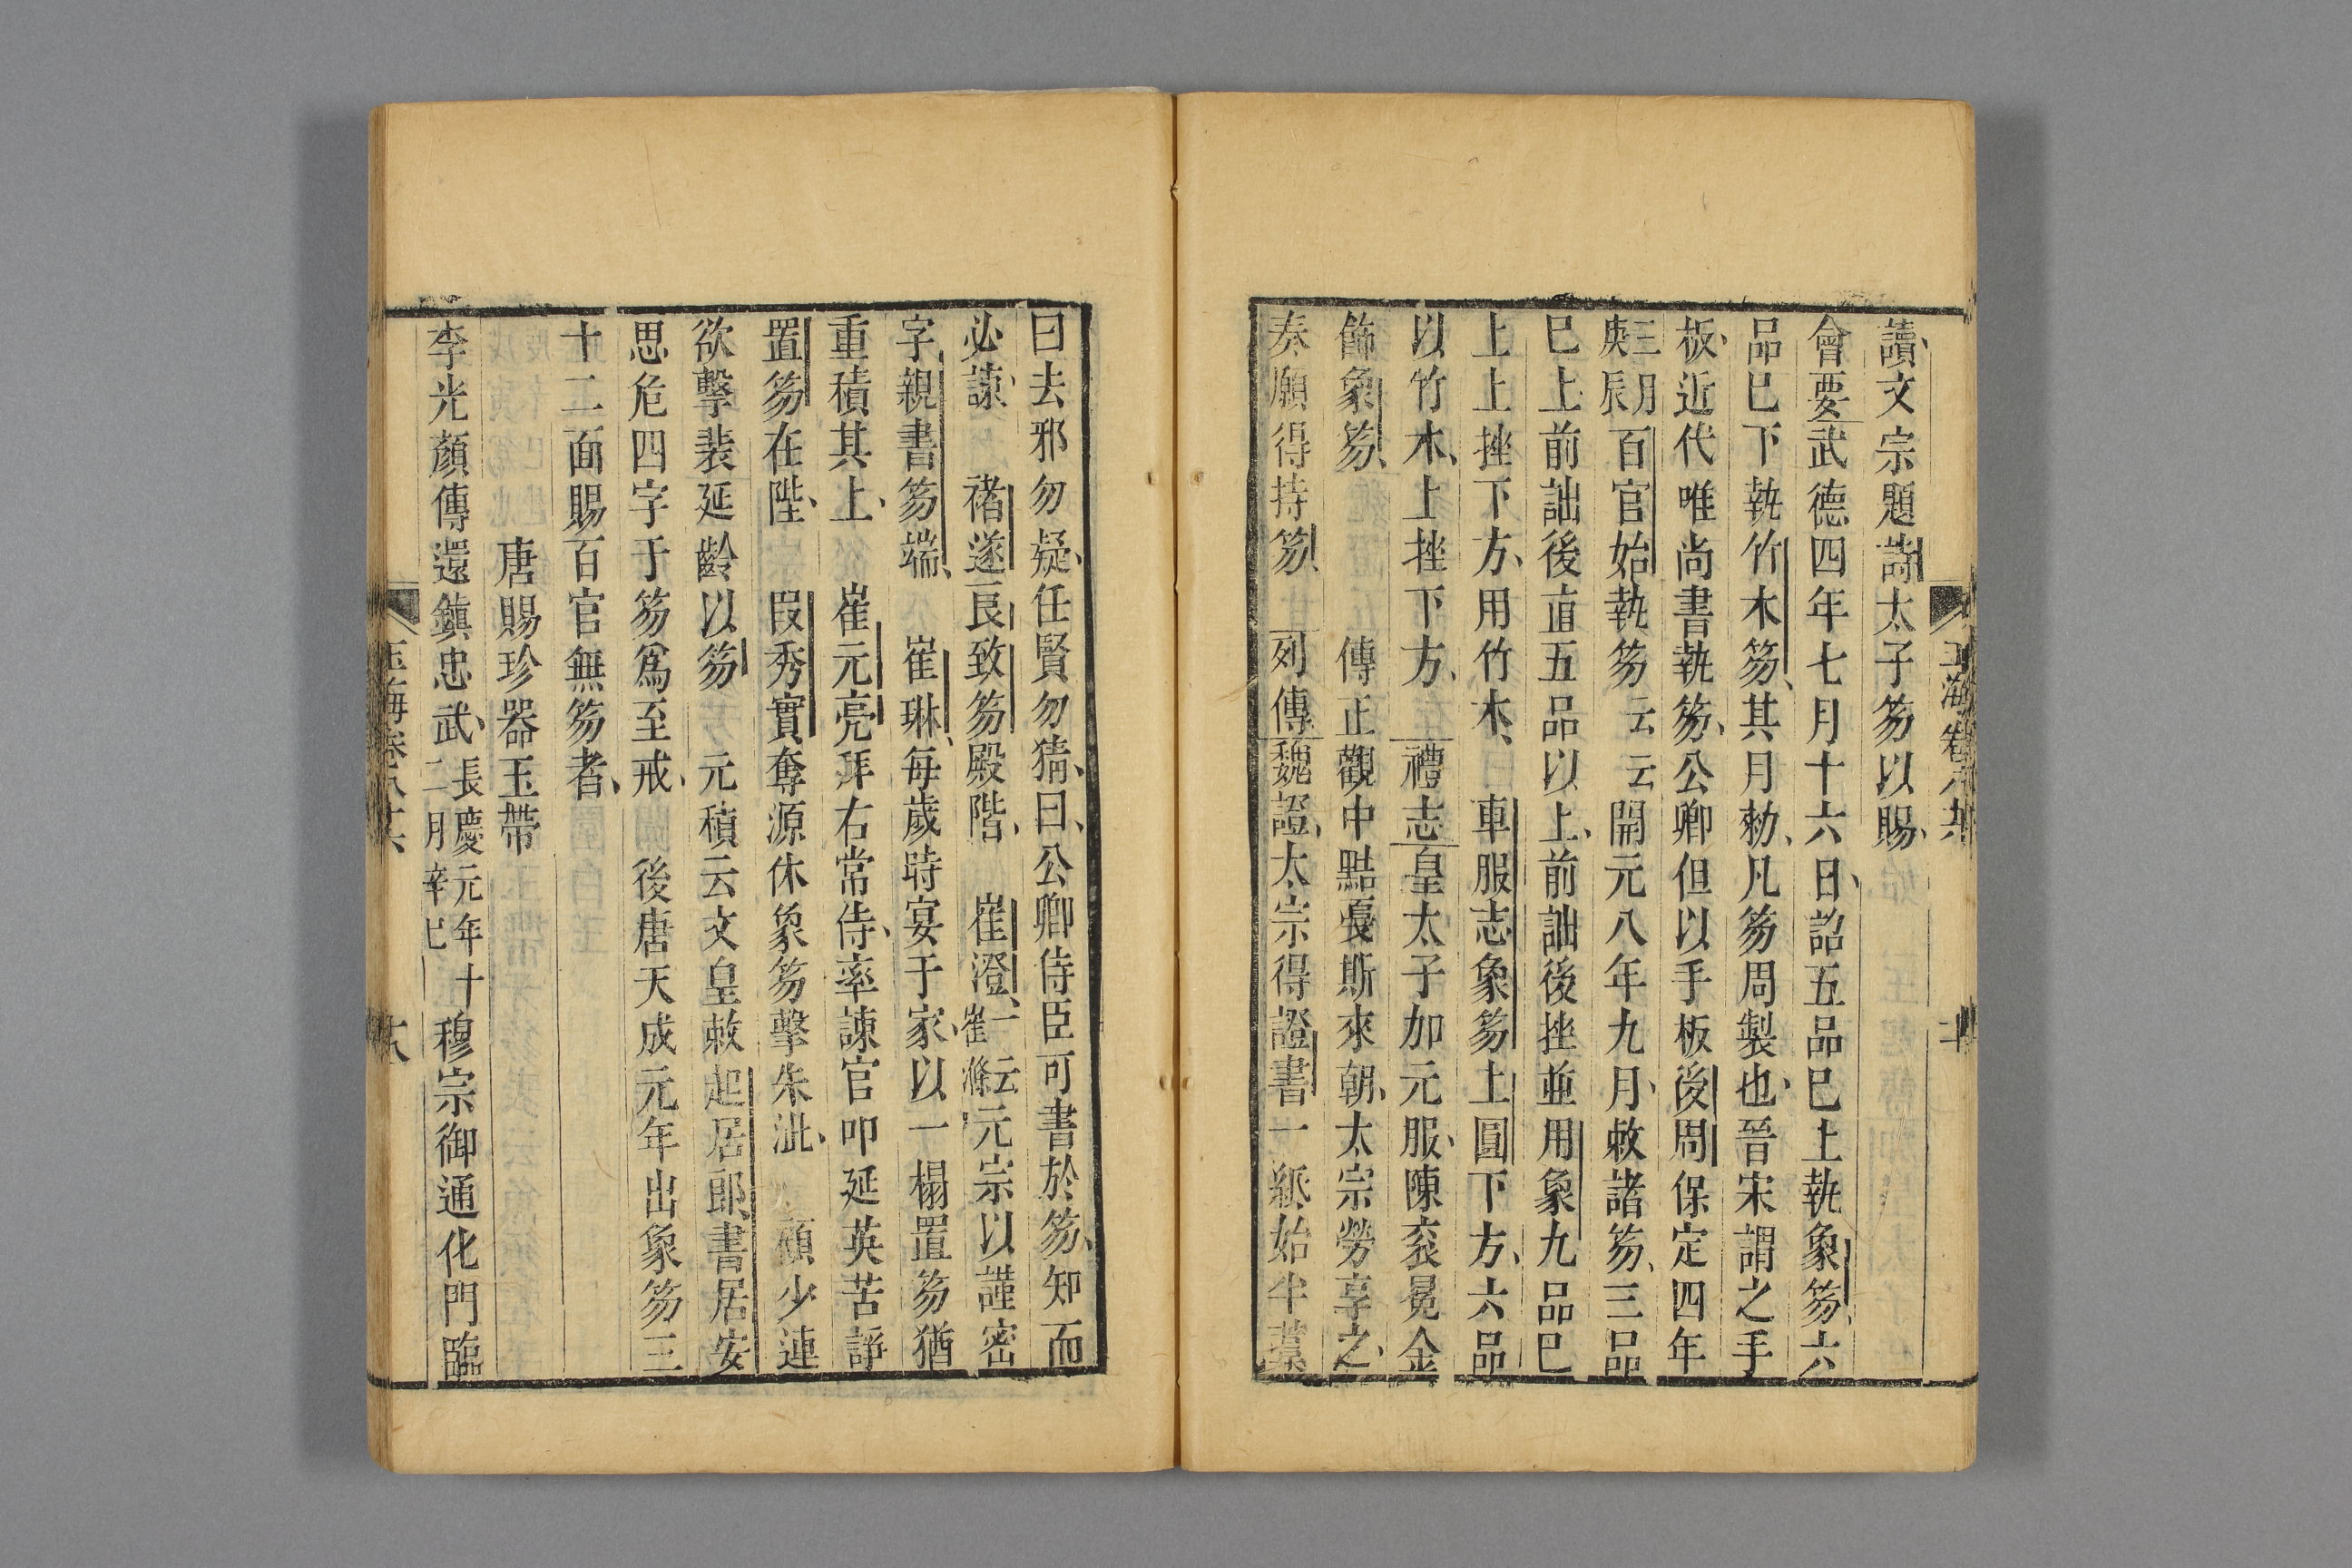 讀文宗題詩太子笏以賜
會要武德四年七月十六日詔五品已上執象笏六
品已下執竹木笏其月勑凡笏周製也晉宋謂之手
板近代唯尚書執笏公卿但以手板後周保定四年
三月庚辰百官始執笏云云開元八年九月敕諸笏三品
已上前詘後直五品以上前詘後挫並用象九品已
上上挫下方用竹木 車服志象笏上圓下方六品
以竹木上挫下方 禮志皇太子加元服陳衮冕金
飾象笏 傳正觀中黠戛斯來朝太宗勞享之
奏願得持笏 列傳魏證太宗得證書一紙始半藁
曰去邪勿疑任賢勿猜曰公卿侍臣可書於笏知而
必諫 褚遂良致笏殿階 崔澄一云崔滌元宗以謹密
字親書笏端 崔琳每歲時宴于家以一榻置笏猶
重積其上 崔元亮拜右常侍率諫官叩延英苦諍
置笏在陛 段秀實奪源休象笏擊朱泚 顏少連
欲擊裴延齡以笏 元積云文皇敕起居郎書居安
思危四字于笏爲至戒 後唐天成元年出象笏三
十二面賜百官無笏者
唐賜珍器玉帶
李光顏傳還鎮忠武長慶元年十二月辛巳穆宗御通化門臨
玉海卷八六